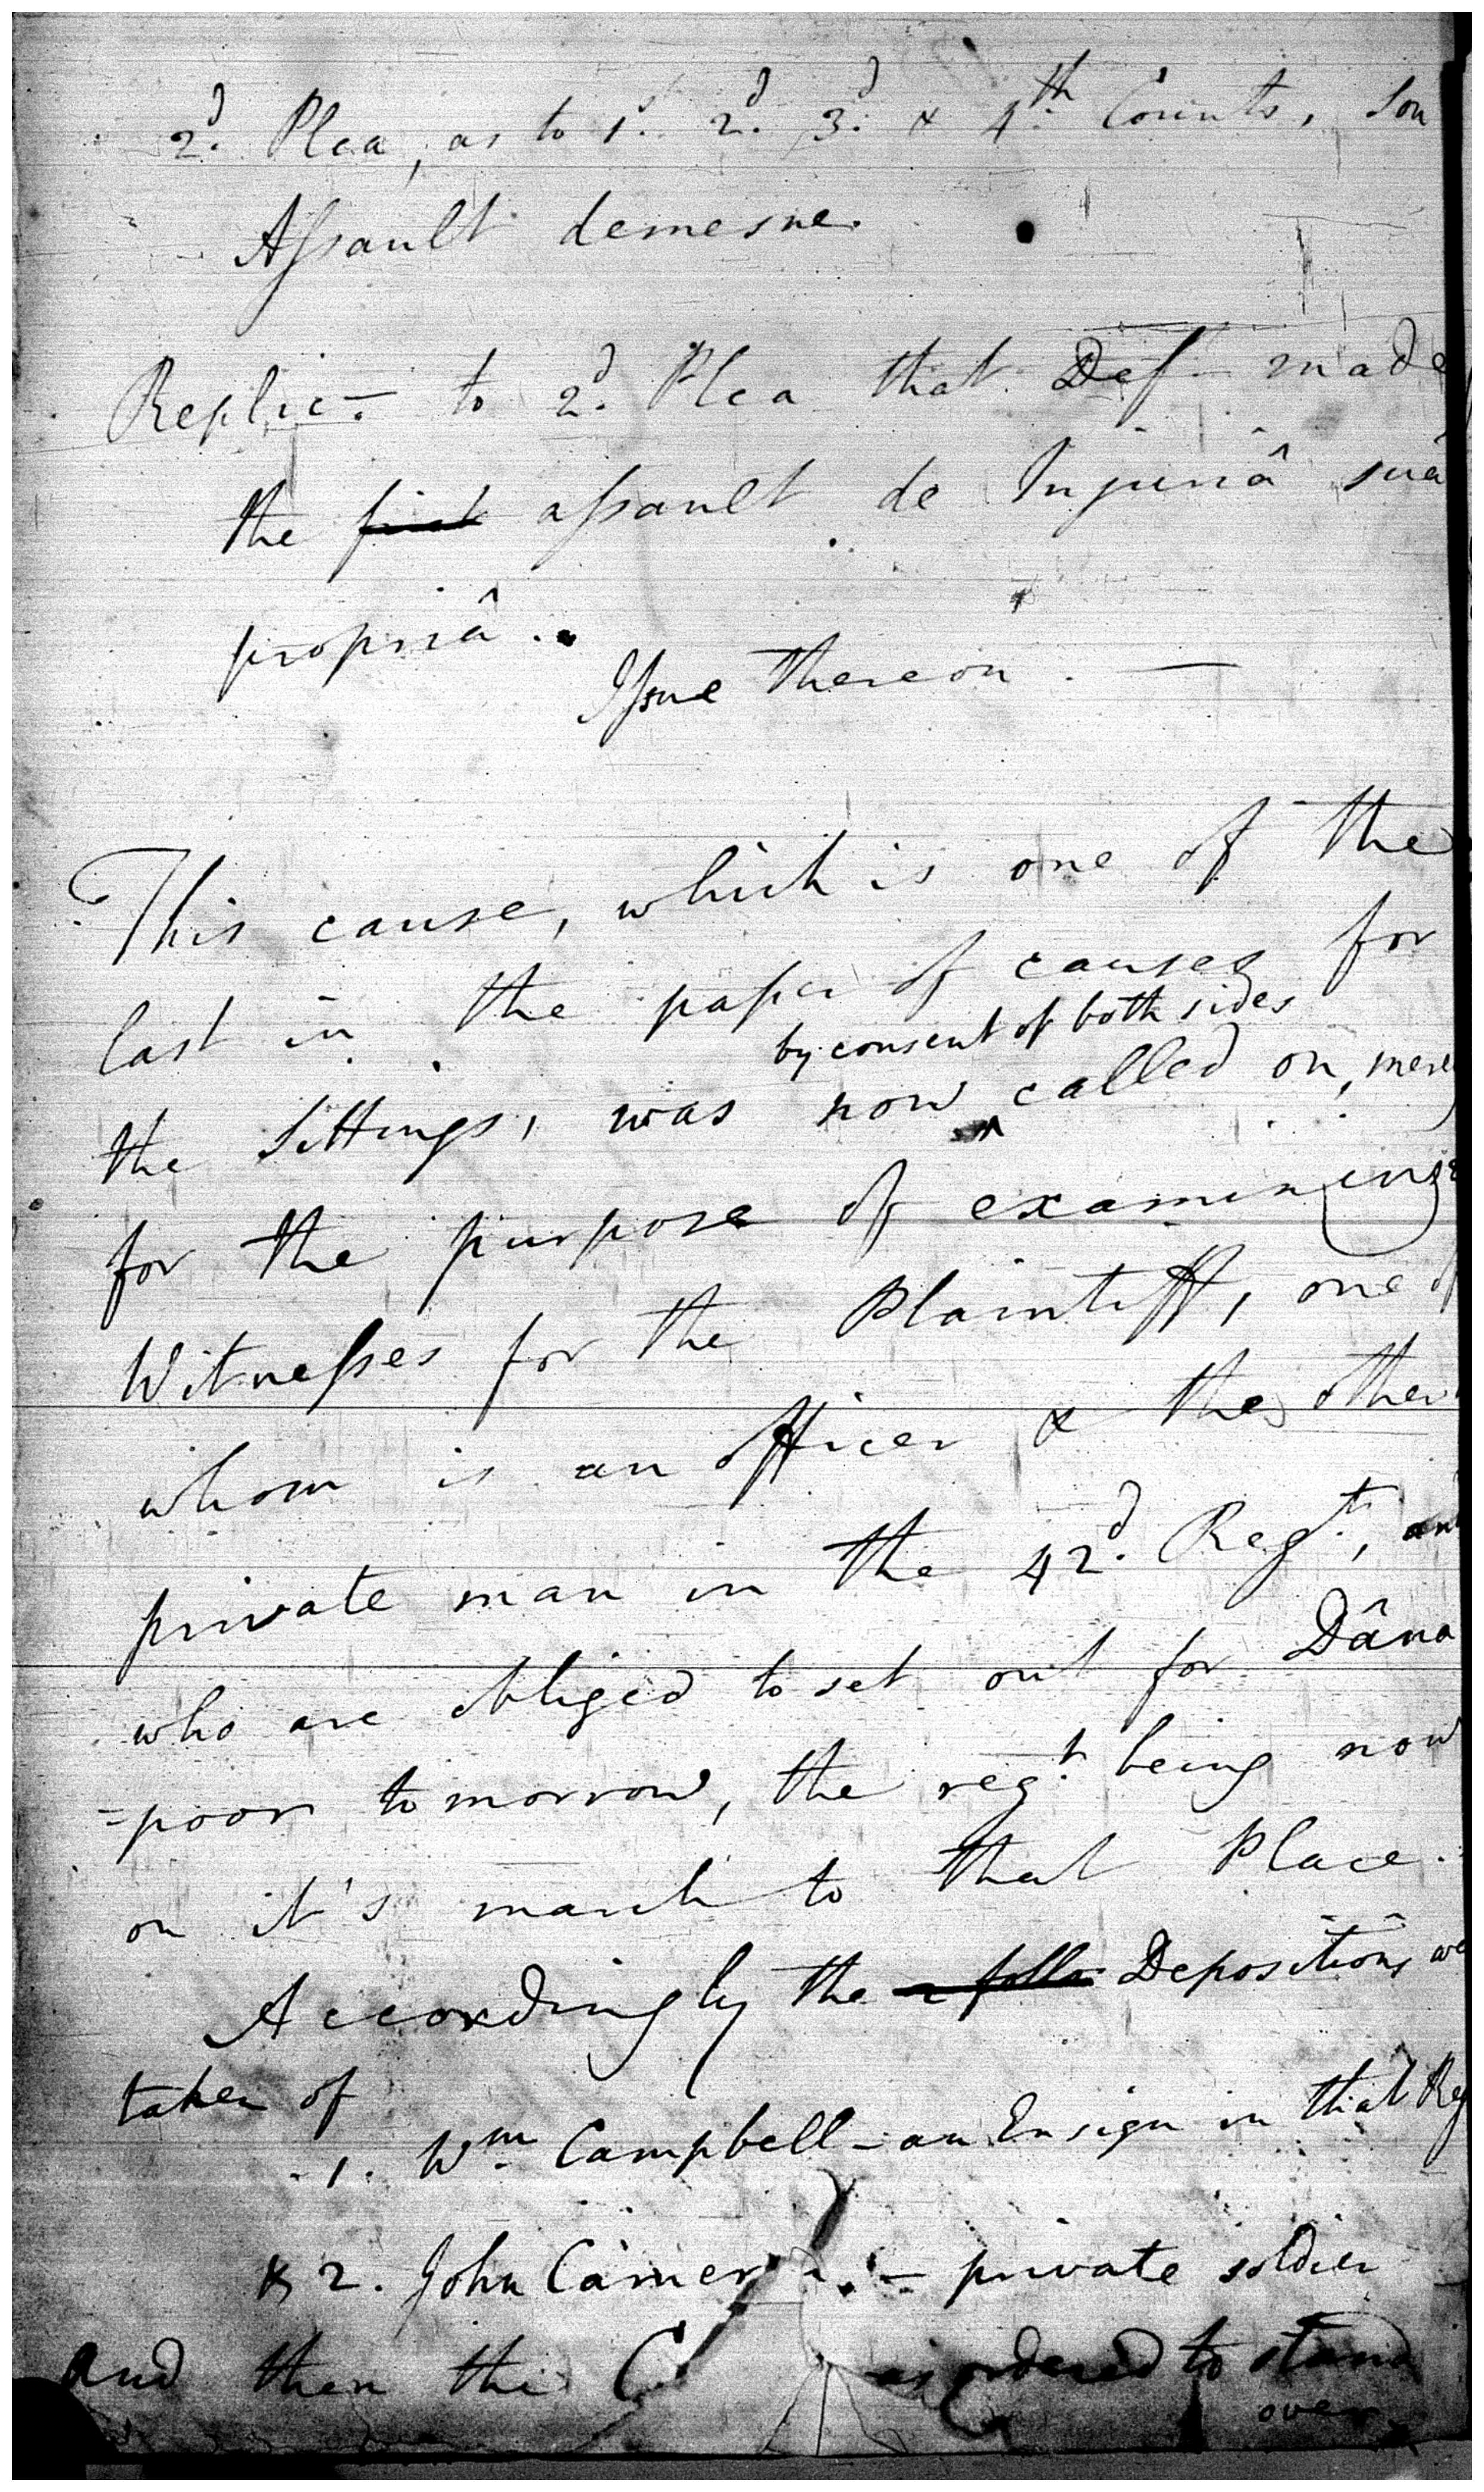 2d. Plea, as to 1st. 2d. 3d. & 4th. Counts, Son
Assault demesne.
Replicn. to 2d. Plea that Deft. made
the first assault de Injuriâ suâ
propriâ.
Issue thereon. —
This cause, which is one of the
last in the paper of causes for
by consent of both sides
the Sittings, was now called on, mere
for the purpose of examining 2
Witnesses for the Plaintiff, one of
whom is an officer & the other
private man in the 42d. Regt., and
who are obliged to set out for Dâna
-poor tomorrow, the regt. being now
on it's march to that Place.
Accordingly the Depositions we
taken of
1. Wm. Campbell - an Ensign in that Reg
& 2. John - private soldier
And then the C as ordered to stand
over